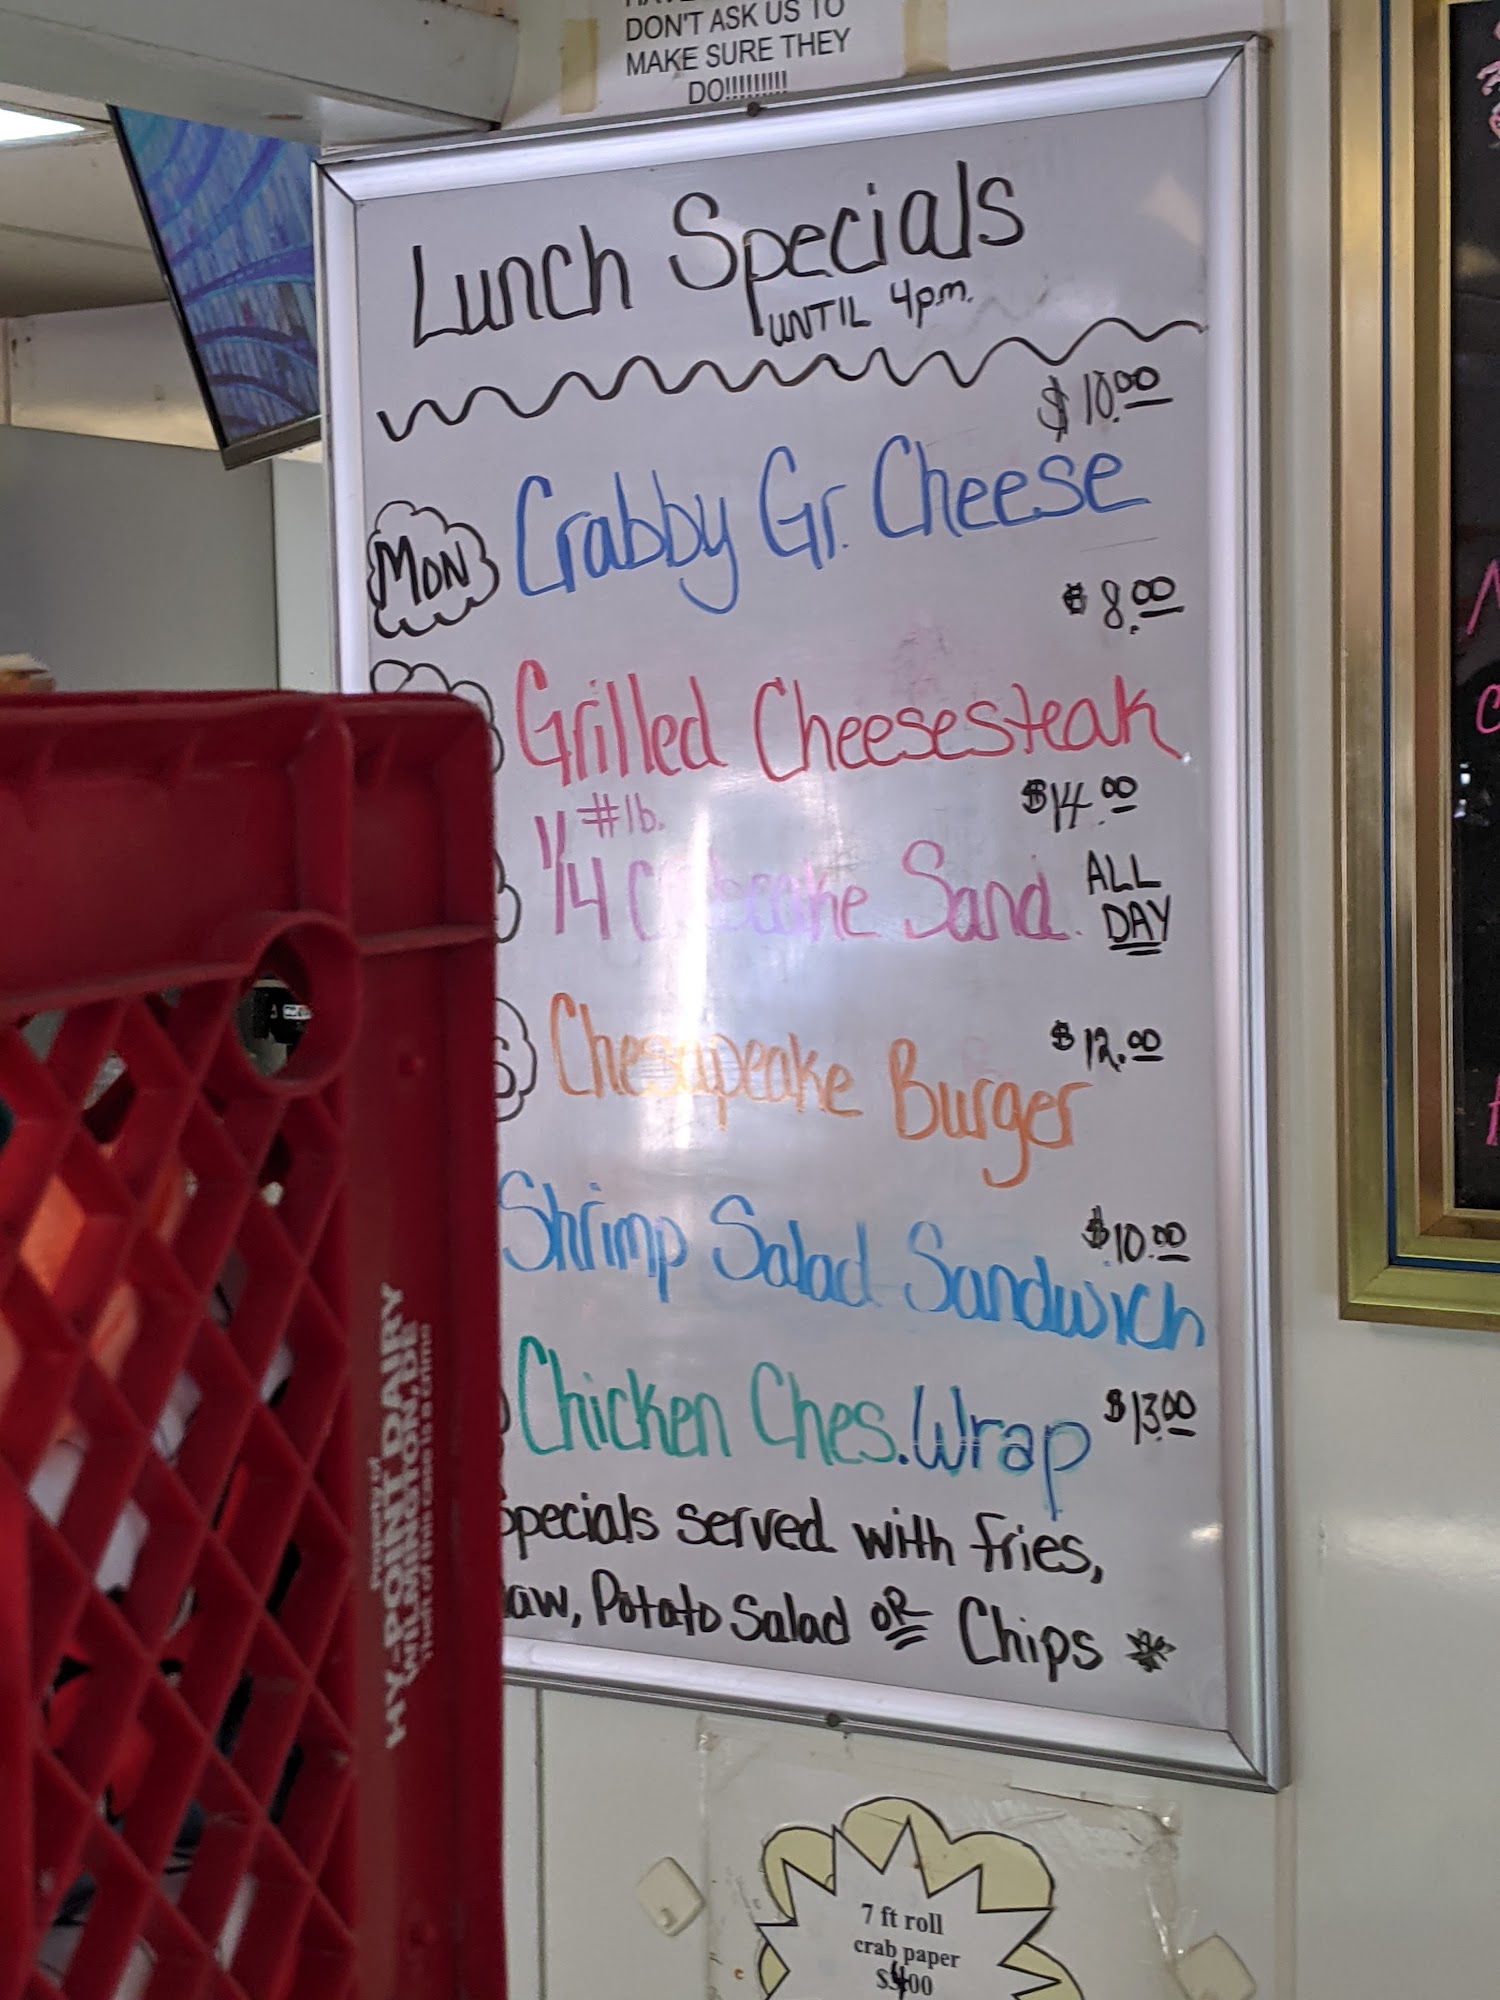 DON'T ASK US TO
MAKE SURE THEY
DO!!!!!!!!!!
Lunch Specials
UNTIL 4pm.
$10.00
MON Crabby Gr. Cheese
$8.00
Grilled Cheesesteak
#lb. $14.00
1/4 Crabcake Sand. ALL
DAY
$12.00
Chesapeake Burger
$10.00
Shrimp Salad Sandwich
Chicken Ches. Wrap $13.00
Specials served with fries,
Potato Salad OR Chips *
Property of
HY-POINT DAIRY
WILMINGTON, DE
Theft of this case is a crime
7 ft roll
crab paper